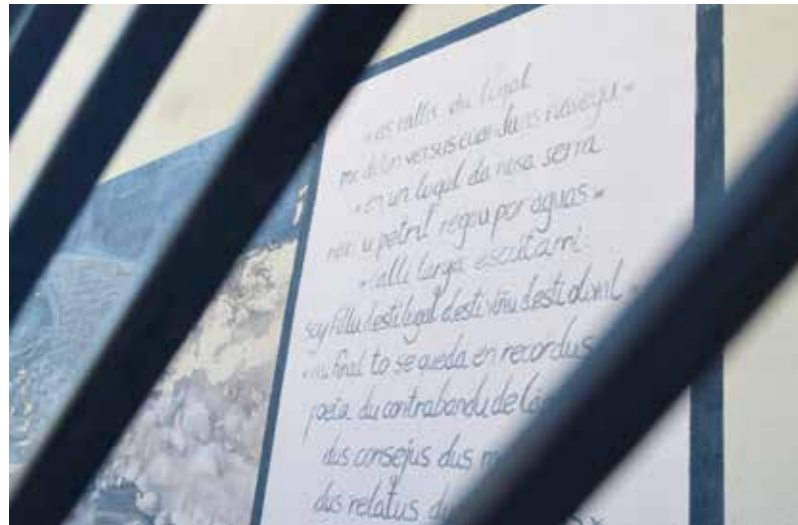 «as callis du lugal
meditan versus cuandu as navegu»
«en un lugal da nosa serra
naci u petril regau por aguas»
«calli larga escuitami
soy fillu desti lugal desti viñu desti olivil»
«au final to se queda en recordus
poeta du contrabandu de
dus consejus dus
dus relatus